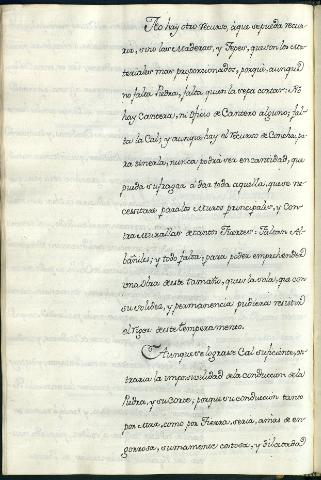 No hay otro recurso, á que se pueda recur-
rir, sino las Maderas, y Tepes, que son los Ma-
teriales mas proporcionados, porque aunque
no falta Piedra, falta quien la sepa cortar: No
hay Cantera, ni Oficio de Cantero alguno; fal-
ta la Cal; y aunque hay el recurso de Concha, pa-
ra tenerla, nunca podrá ser en cantidad, que
pueda sufragar á dar toda aquella, que se ne-
cessitare para los Muros principales, y Con-
tra Murallas de tantos Fuertes: Faltan Al-
bañiles; y todo falta, para poder emprehender
una Obra de este tamaño, que es la sola, que con
su solidez, y permanencia pudiera resistir
el rigor de este temperamento.
Aunque se lograse Cal suficiente, en-
traria la imposivilidad de la conducion de la
Piedra, y su corte; porque su conducion tanto
por Mar, como por Tierra, seria, amas de en-
gorrosa, sumamente costosa, y dilatada